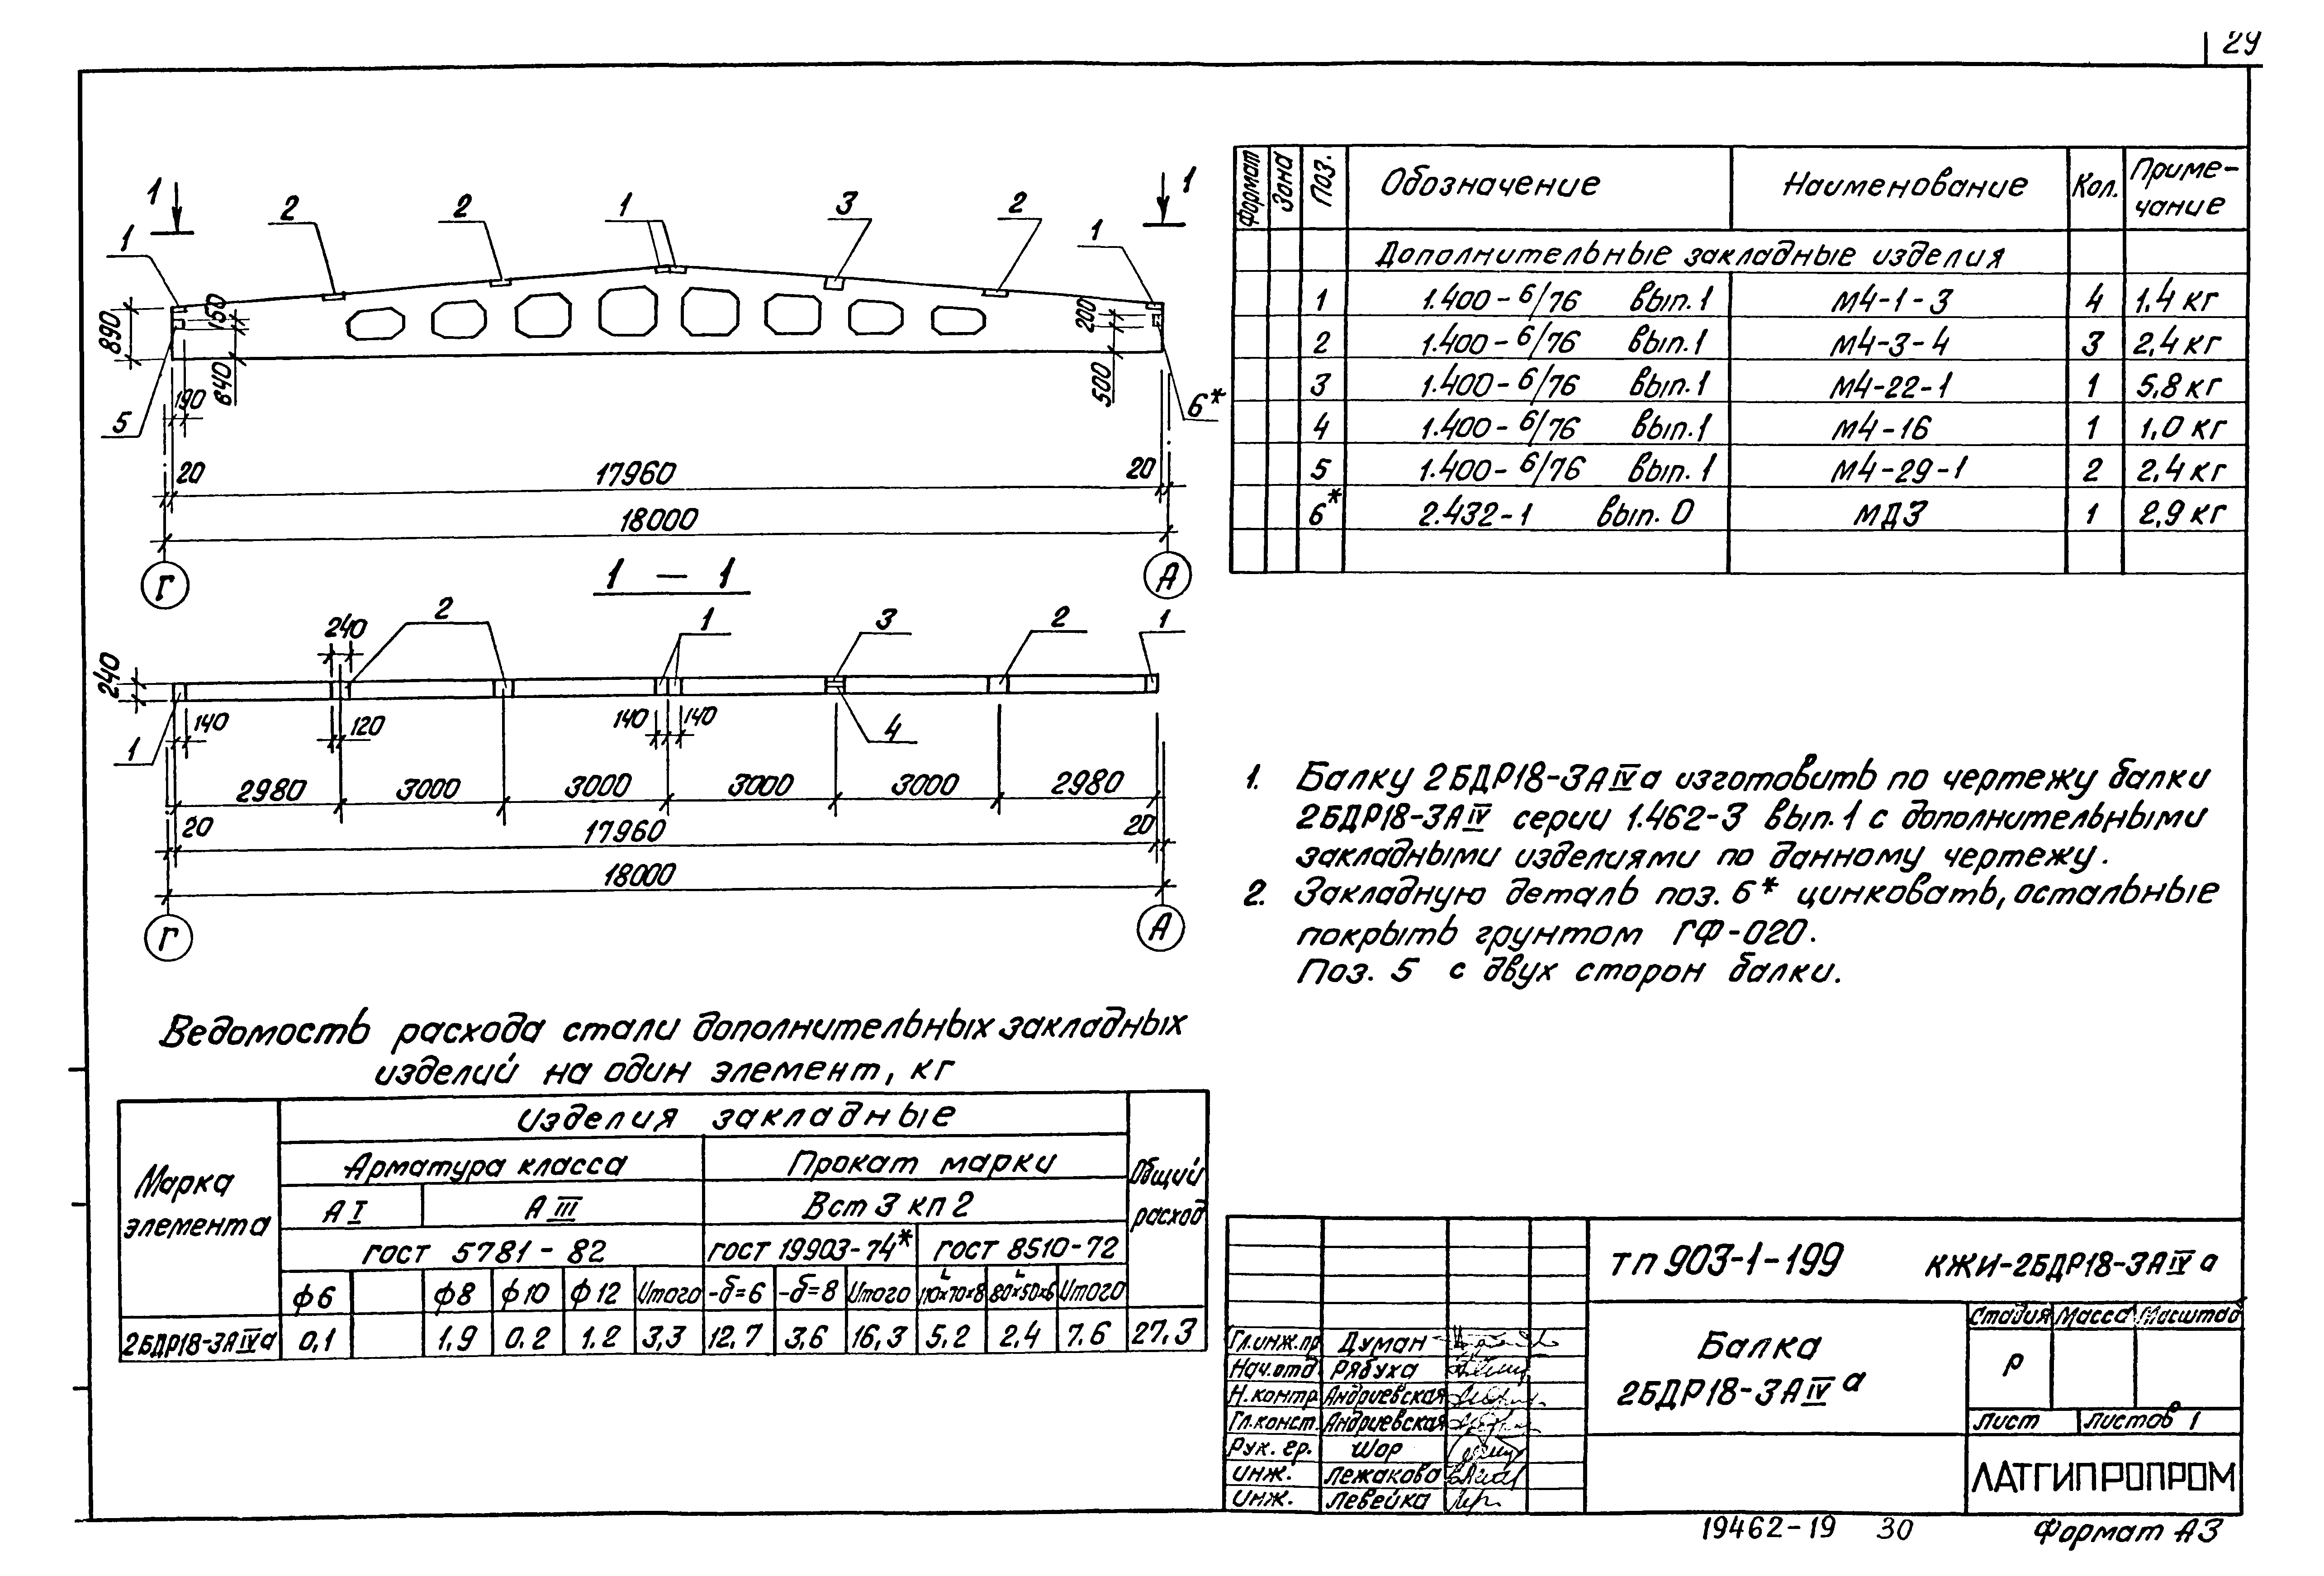 29
1 1
2 2 1 3 2
1 1
890 150 200
840 500
190
5 6*
20 17960 20
18000
Г А
1 – 1
240 2 1 3 2 1
240
140 120 140 140
1 4
2980 3000 3000 3000 3000 2980
20 17960 20
18000
Г А
Формат Зона Поз. Обозначение Наименование Кол. Приме-
чание
Дополнительные закладные изделия
1 1.400-6/76 вып.1 М4-1-3 4 1,4 кг
2 1.400-6/76 вып.1 М4-3-4 3 2,4 кг
3 1.400-6/76 вып.1 М4-22-1 1 5,8 кг
4 1.400-6/76 вып.1 М4-16 1 1,0 кг
5 1.400-6/76 вып.1 М4-29-1 2 2,4 кг
6* 2.432-1 вып. 0 МД3 1 2,9 кг
1. Балку 2БДР18-3АIVа изготовить по чертежу балки
2БДР18-3АIV серии 1.462-3 вып.1 с дополнительными
закладными изделиями по данному чертежу.
2. Закладную деталь поз. 6* цинковать, остальные
покрыть грунтом ГФ-020.
Поз. 5 с двух сторон балки.
Ведомость расхода стали дополнительных закладных
изделий на один элемент, кг
Марка
элемента
Изделия закладные
Общий
расход
Арматура класса Прокат марки
АI АIII Вст 3 кп 2
гост 5781-82 гост 19903-74* гост 8510-72
ф6 ф8 ф10 ф12 Итого -δ=6 -δ=8 Итого L110×70×8 L80×50×6 Итого
2БДР18-3АIVа 0,1 1,9 0,2 1,2 3,3 12,7 3,6 16,3 5,2 2,4 7,6 27,3
ТП 903-1-199 КЖИ-2БДР18-3АIVа
Балка
2БДР18-3АIVа
Стадия Масса Масштаб
Р
Лист Листов 1
ЛАТГИПРОПРОМ
Гл.инж.пр Думан
Нач.отд. Рябуха
Н.контр. Андриевская
Гл.конст. Андриевская
Рук. гр. Шор
инж. Лежакова
инж. Левейка
19462-19 30 Формат А3